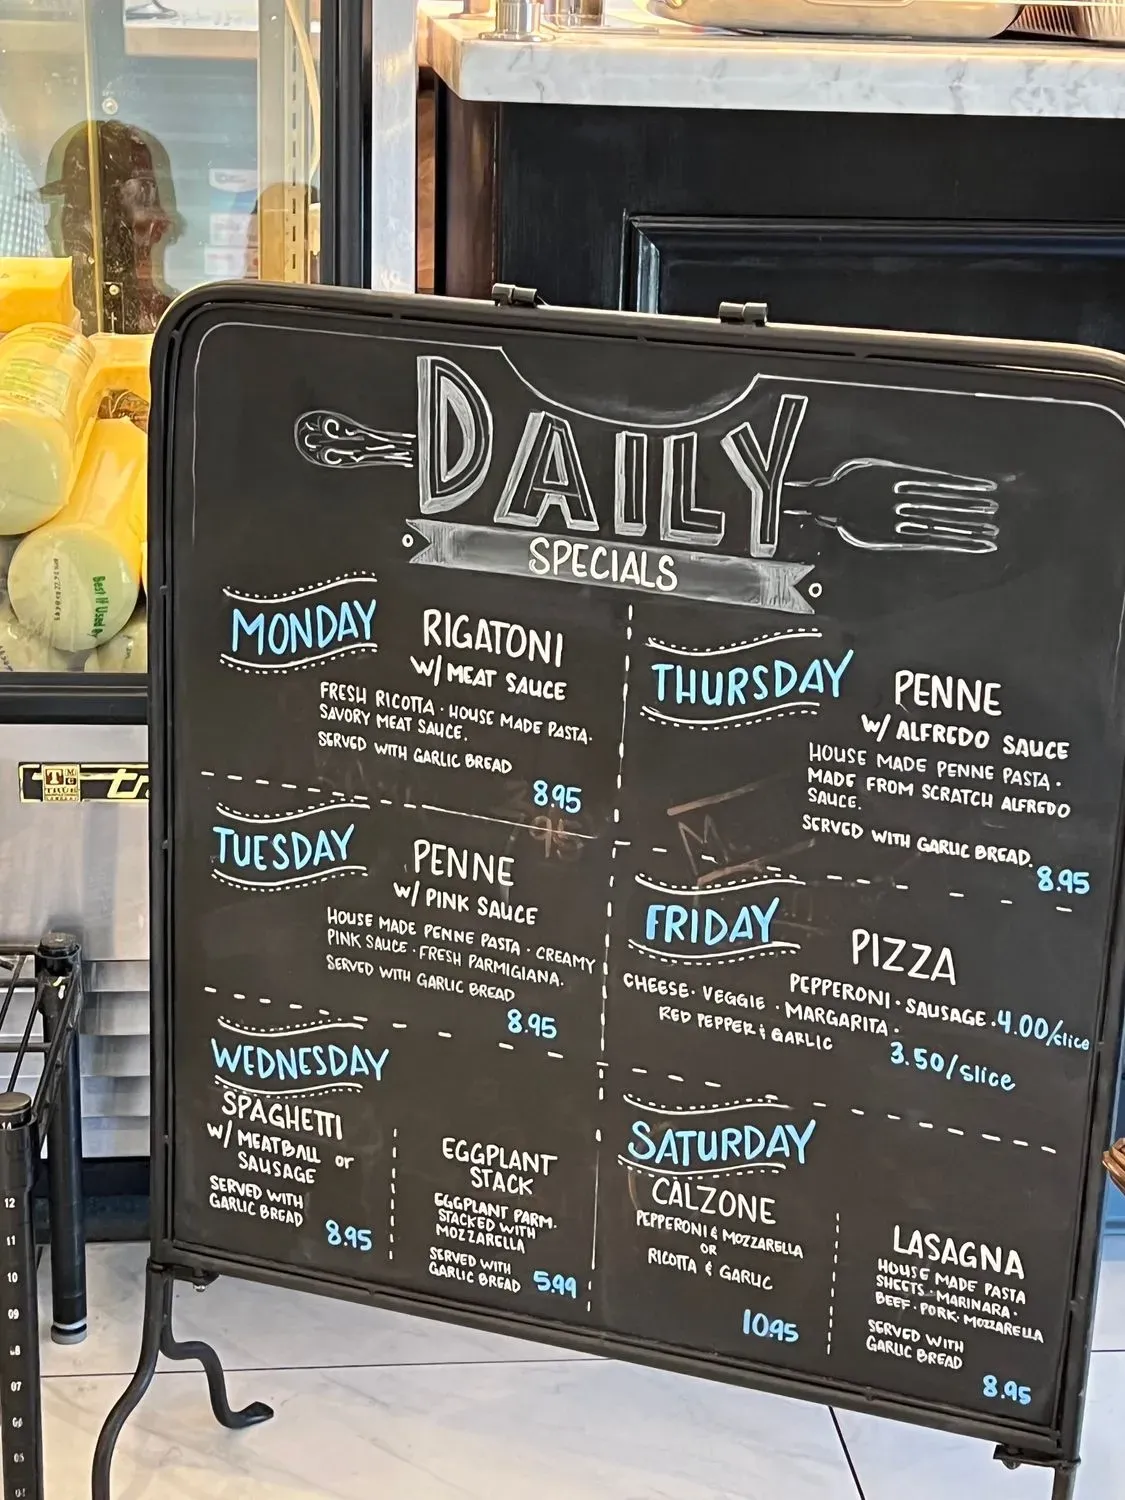 DAILY
SPECIALS
MONDAY
RIGATONI
W/ MEAT SAUCE
FRESH RICOTTA · HOUSE MADE PASTA ·
SAVORY MEAT SAUCE.
SERVED WITH GARLIC BREAD
8.95
TUESDAY
PENNE
W/ PINK SAUCE
HOUSE MADE PENNE PASTA · CREAMY
PINK SAUCE · FRESH PARMIGIANA.
SERVED WITH GARLIC BREAD
8.95
WEDNESDAY
SPAGHETTI
W/ MEATBALL or
SAUSAGE
SERVED WITH
GARLIC BREAD
8.95
EGGPLANT
STACK
EGGPLANT PARM.
STACKED WITH
MOZZARELLA
SERVED WITH
GARLIC BREAD 5.99
THURSDAY
PENNE
W/ ALFREDO SAUCE
HOUSE MADE PENNE PASTA ·
MADE FROM SCRATCH ALFREDO
SAUCE.
SERVED WITH GARLIC BREAD.
8.95
FRIDAY
PIZZA
PEPPERONI · SAUSAGE · 4.00/slice
CHEESE · VEGGIE · MARGARITA ·
RED PEPPER & GARLIC
3.50/slice
SATURDAY
CALZONE
PEPPERONI & MOZZARELLA
OR
RICOTTA & GARLIC
10.95
LASAGNA
HOUSE MADE PASTA
SHEETS · MARINARA ·
BEEF · PORK · MOZZARELLA
SERVED WITH
GARLIC BREAD
8.95
Best If Used By
TRUE
12
11
10
09
07